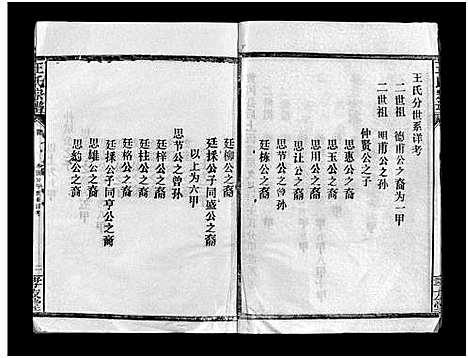 王氏分世系详考
二世祖　德甫公之裔为一甲
二世祖　明甫公之孙
仲贤公之子
思惠公之裔
思玉公之裔
思用公之裔
思让公之裔
思节公之曾孙
廷栋公之裔
廷柳公之裔
廷採公子同盛公之裔
以上为六甲
思节公之曾孙
廷梓公之裔
廷桂公之裔
廷格公之裔
廷採公子同亨公之裔
思雄公之裔
思豹公之裔
王氏宗谱